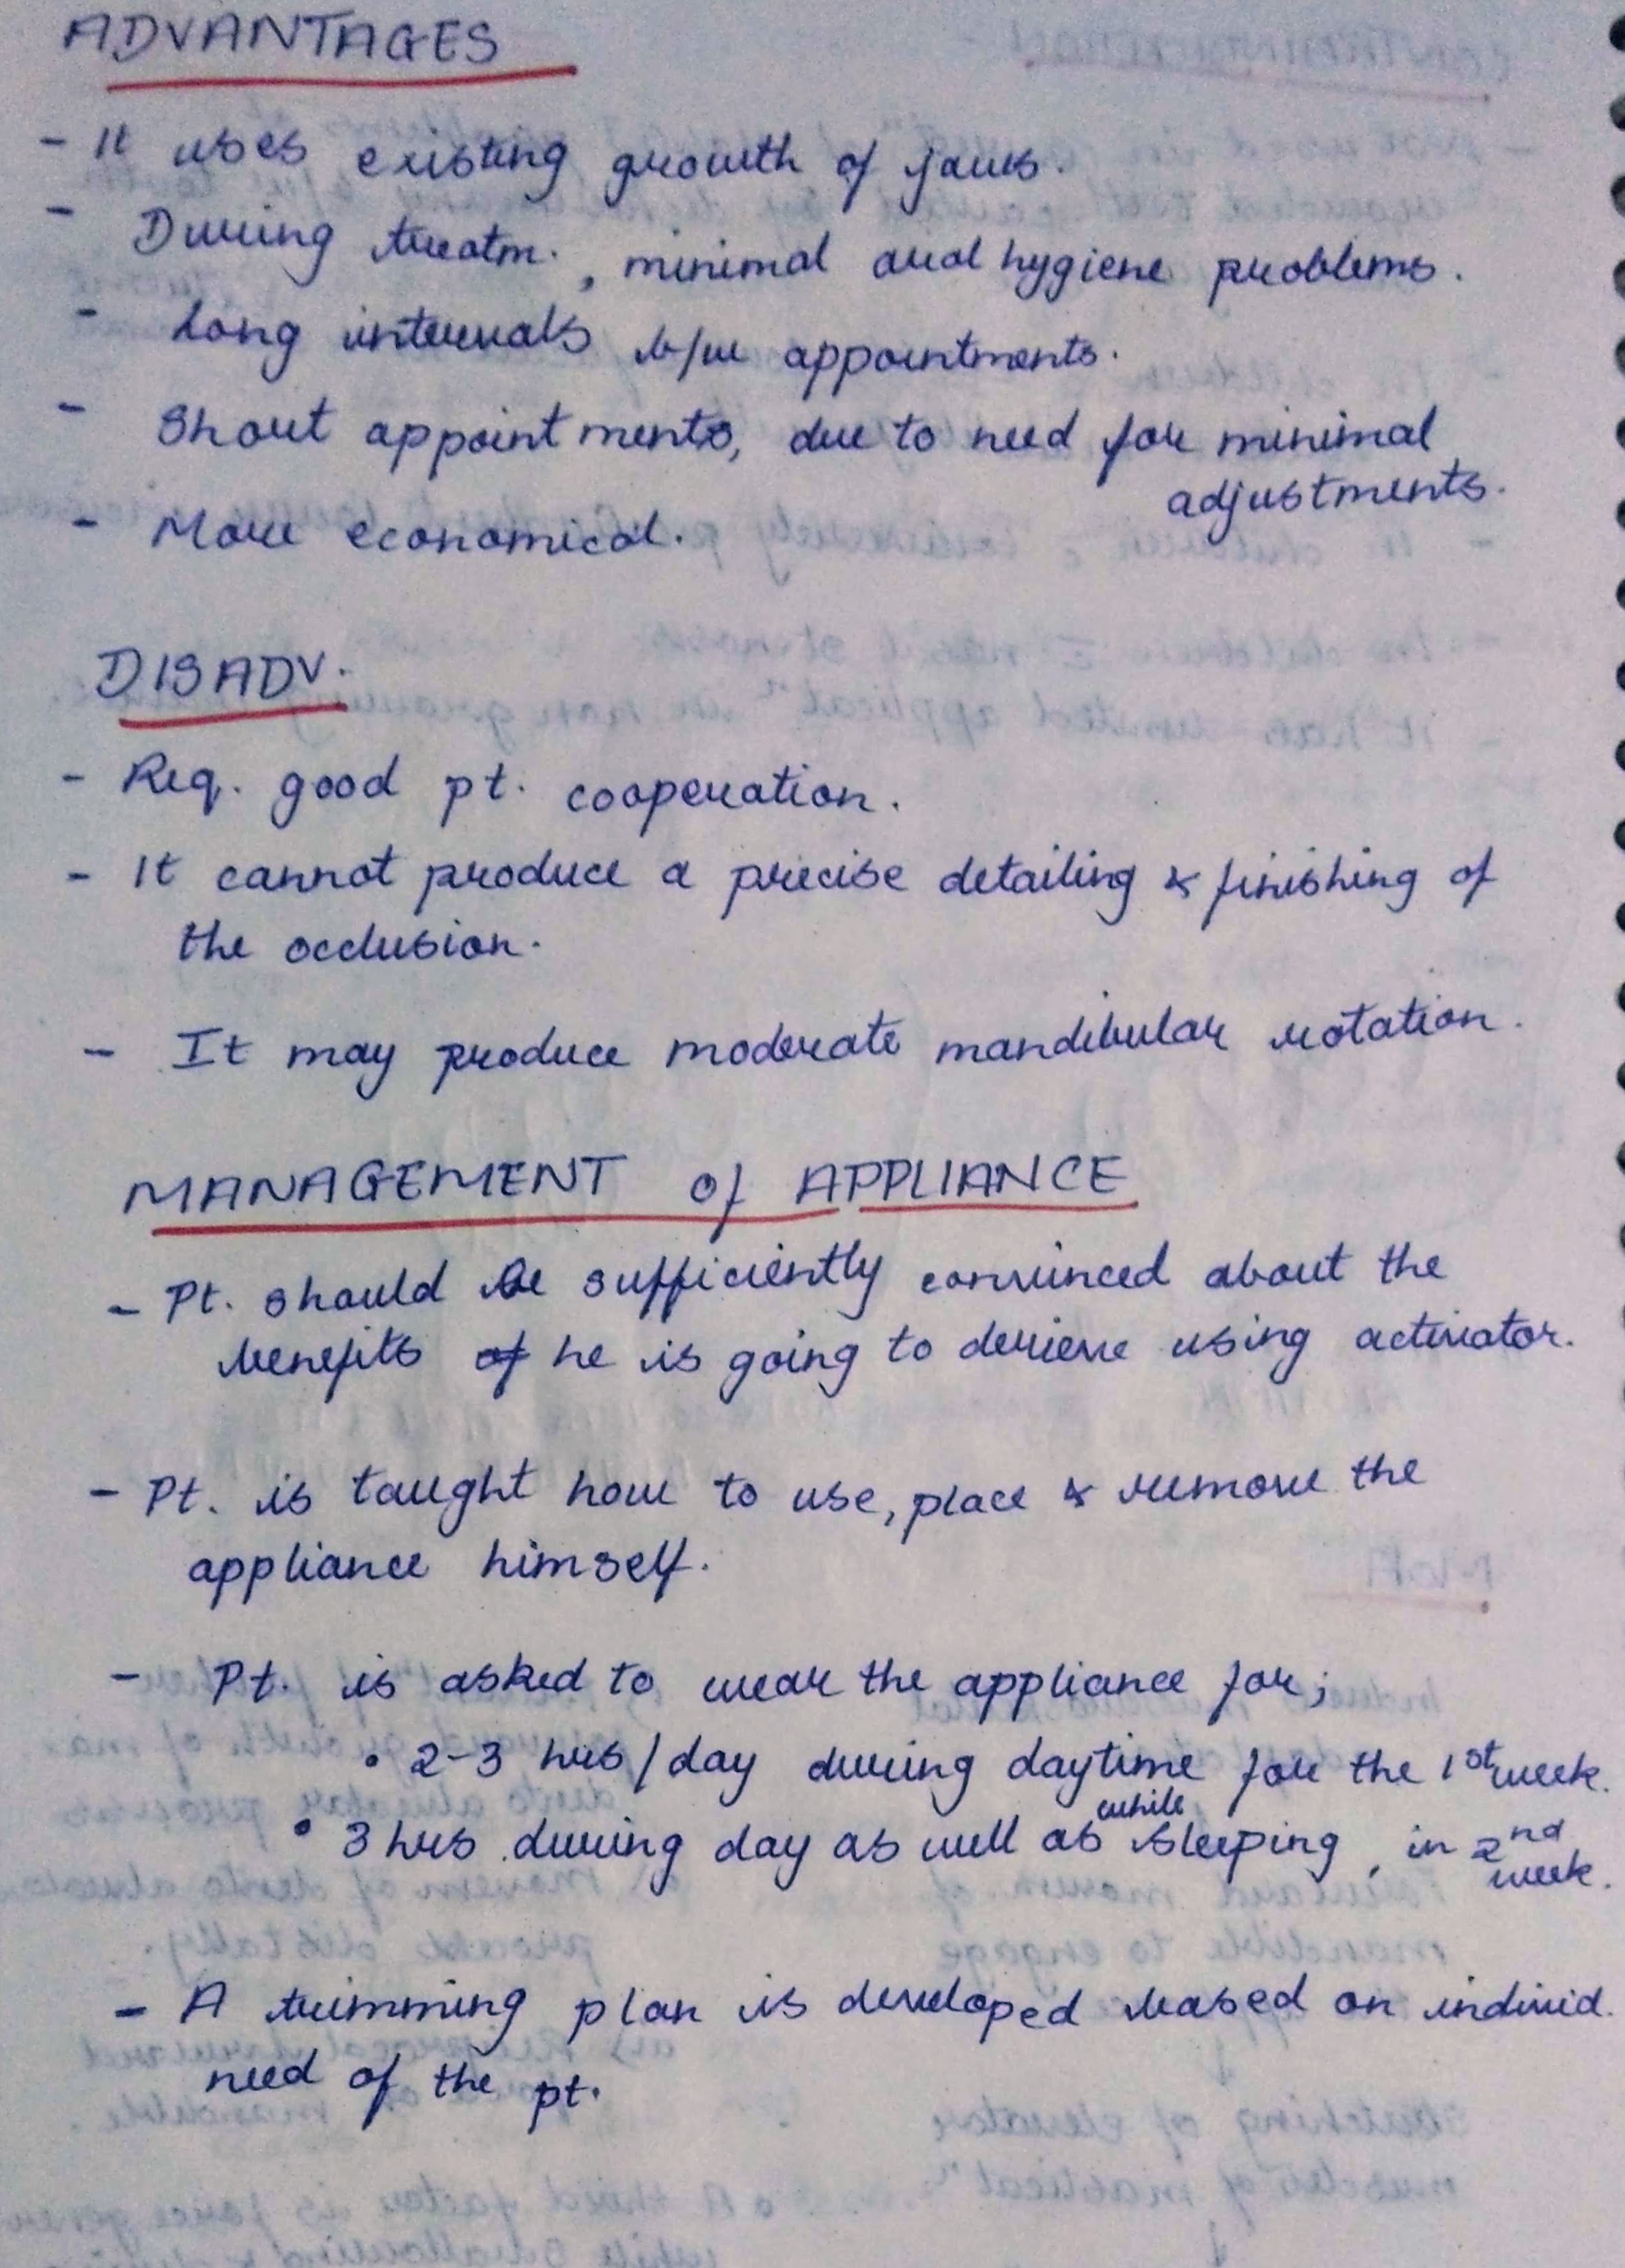 ADVANTAGES
- It uses existing growth of jaws.
- During treatm. , minimal oral hygiene problems.
- Long intervals b/w appointments.
- Short appointments, due to need for minimal
adjustments.
- More economical.
DISADV.
- Req. good pt. cooperation.
- It cannot produce a precise detailing & finishing of
the occlusion.
- It may produce moderate mandibular rotation.
MANAGEMENT of APPLIANCE
- Pt. should be sufficiently convinced about the
benefits of he is going to derieve using activator.
- Pt. is taught how to use, place & remove the
appliance himself.
- Pt. is asked to wear the appliance for;
• 2-3 hrs/day during daytime for the 1st week.
• 3 hrs during day as well as while sleeping, in 2nd
week.
- A trimming plan is developed based on individ.
need of the pt.